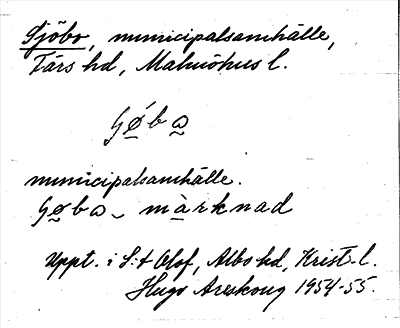 Sjöbo, municipalsamhälle,
Färs hd, Malmöhus l.
municipalsamhälle.
marknad
Uppt. i S:t Olof, Albo hd, Krist. l.
Hugo Areskoug 1954-55.